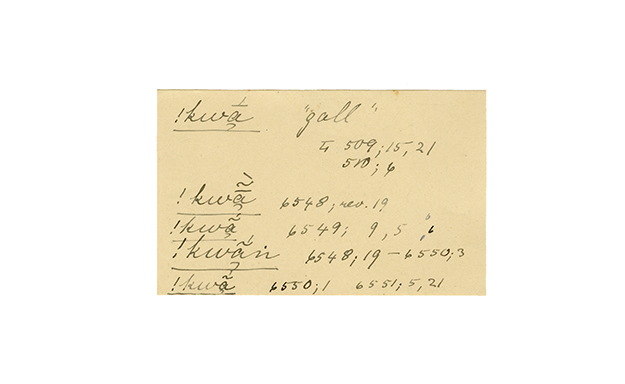 !kwą́ "gall"
L 509; 15, 21
510; 6
!kwą̃́ 6548; rev. 19
!kwą̃ 6549; 9, 5, 6
!kwą̃ń 6548; 19 – 6550; 3
!kwą̃ 6550; 1 6551; 5, 21